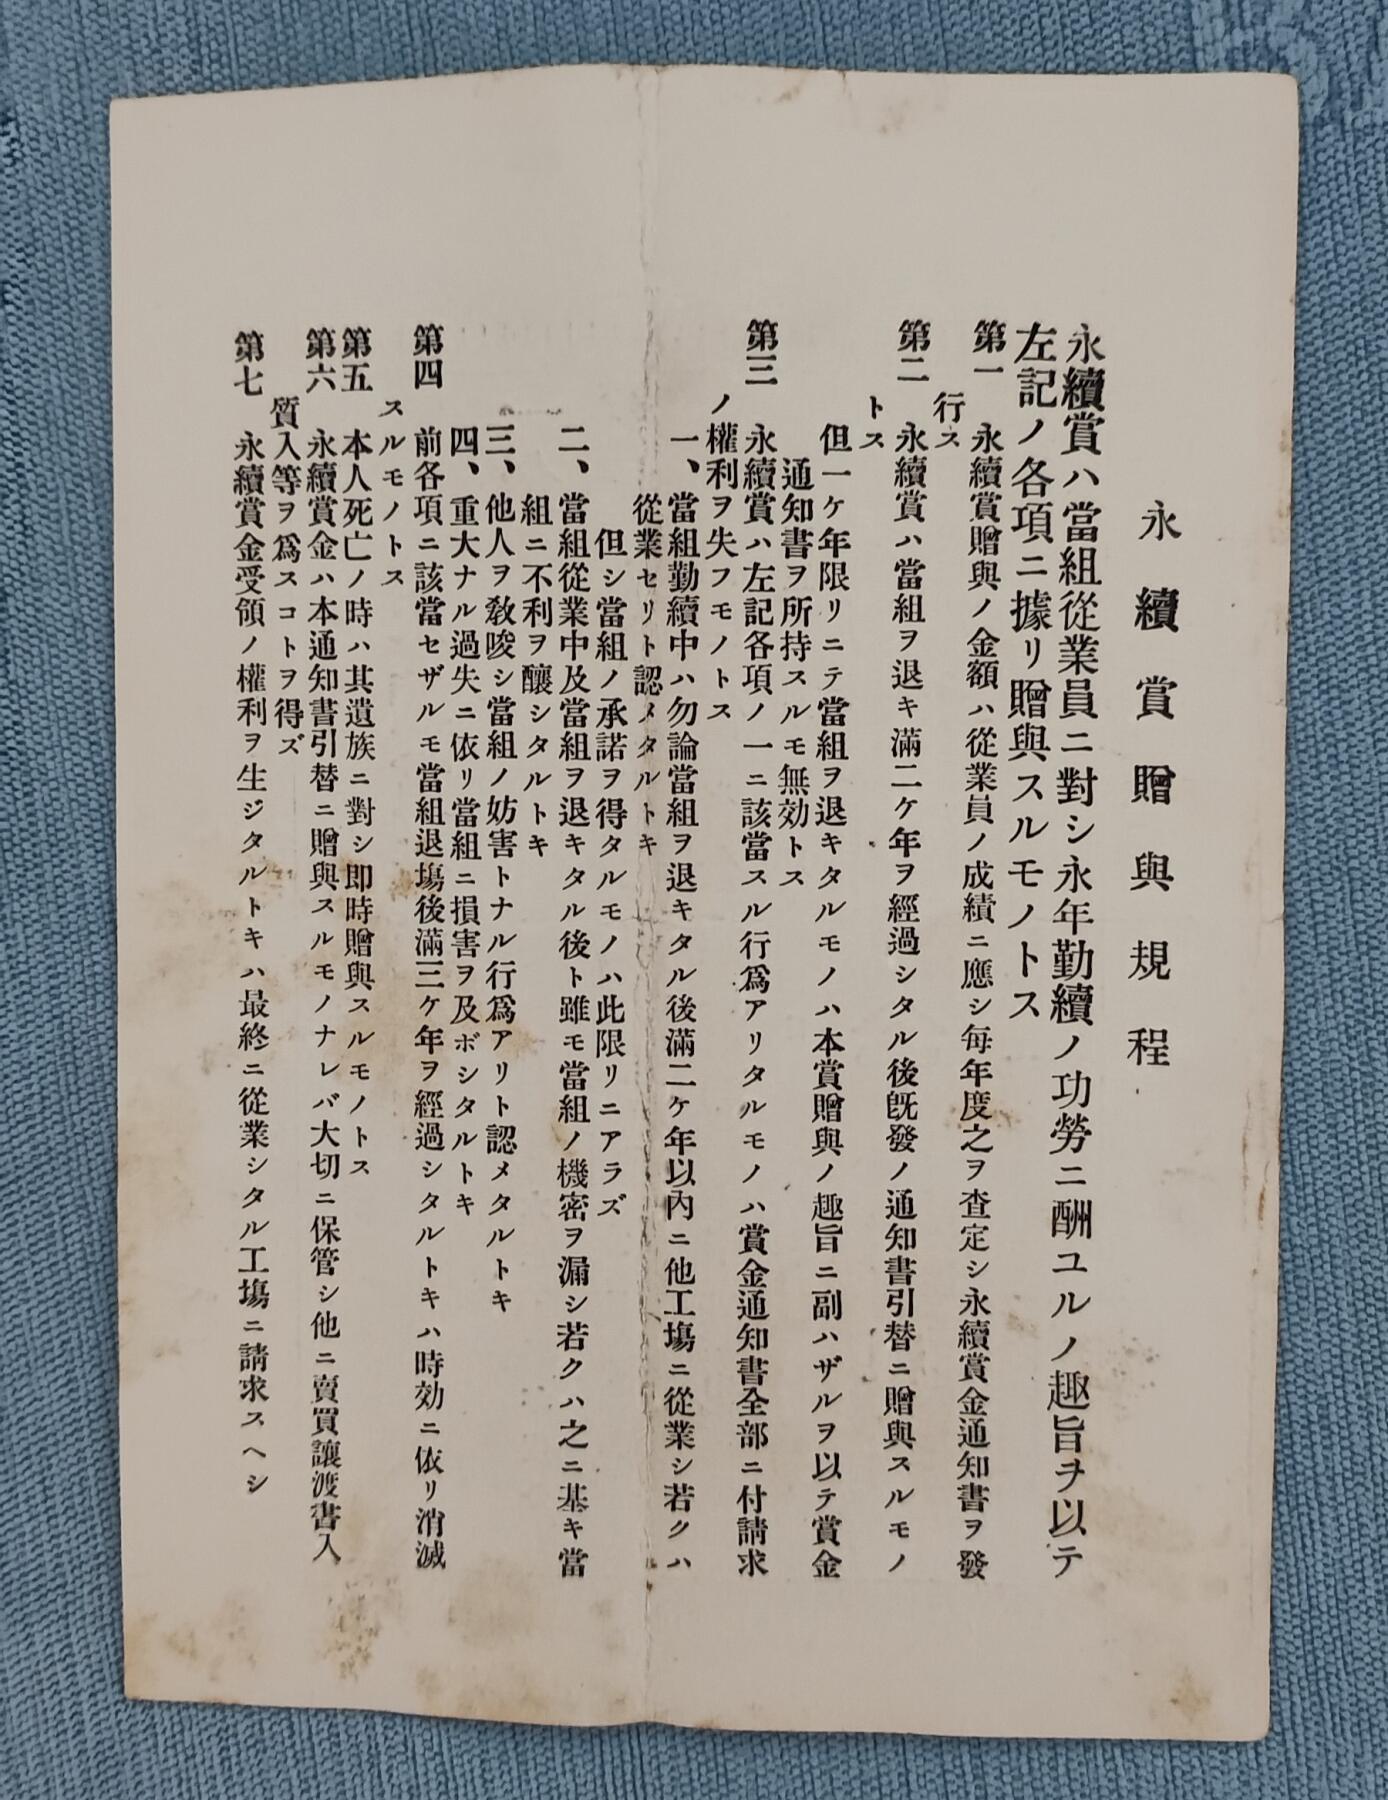 永續賞贈與規程
永續賞ハ當組從業員ニ對シ永年勤續ノ功勞ニ酬ユルノ趣旨ヲ以テ
左記ノ各項ニ據リ贈與スルモノトス
第一　永續賞贈與ノ金額ハ從業員ノ成績ニ應シ每年度之ヲ査定シ永續賞金通知書ヲ發
行ス
第二　永續賞ハ當組ヲ退キ滿二ケ年ヲ經過シタル後既發ノ通知書引替ニ贈與スルモノ
トス
但一ケ年限リニテ當組ヲ退キタルモノハ本賞贈與ノ趣旨ニ副ハザルヲ以テ賞金
通知書ヲ所持スルモ無効トス
第三　永續賞ハ左記各項ノ一ニ該當スル行爲アリタルモノハ賞金通知書全部ニ付請求
ノ權利ヲ失フモノトス
一、當組勤續中ハ勿論當組ヲ退キタル後滿二ケ年以內ニ他工塲ニ從業シ若クハ
從業セリト認メタルトキ
但シ當組ノ承諾ヲ得タルモノハ此限リニアラズ
二、當組從業中及當組ヲ退キタル後ト雖モ當組ノ機密ヲ漏シ若クハ之ニ基キ當
組ニ不利ヲ釀シタルトキ
三、他人ヲ敎唆シ當組ノ妨害トナル行爲アリト認メタルトキ
四、重大ナル過失ニ依リ當組ニ損害ヲ及ボシタルトキ
第四　前各項ニ該當セザルモ當組退塲後滿三ケ年ヲ經過シタルトキハ時効ニ依リ消滅
スルモノトス
第五　本人死亡ノ時ハ其遺族ニ對シ即時贈與スルモノトス
第六　永續賞金ハ本通知書引替ニ贈與スルモノナレバ大切ニ保管シ他ニ賣買讓渡書入
質入等ヲ爲スコトヲ得ズ
第七　永續賞金受領ノ權利ヲ生ジタルトキハ最終ニ從業シタル工塲ニ請求スヘシ